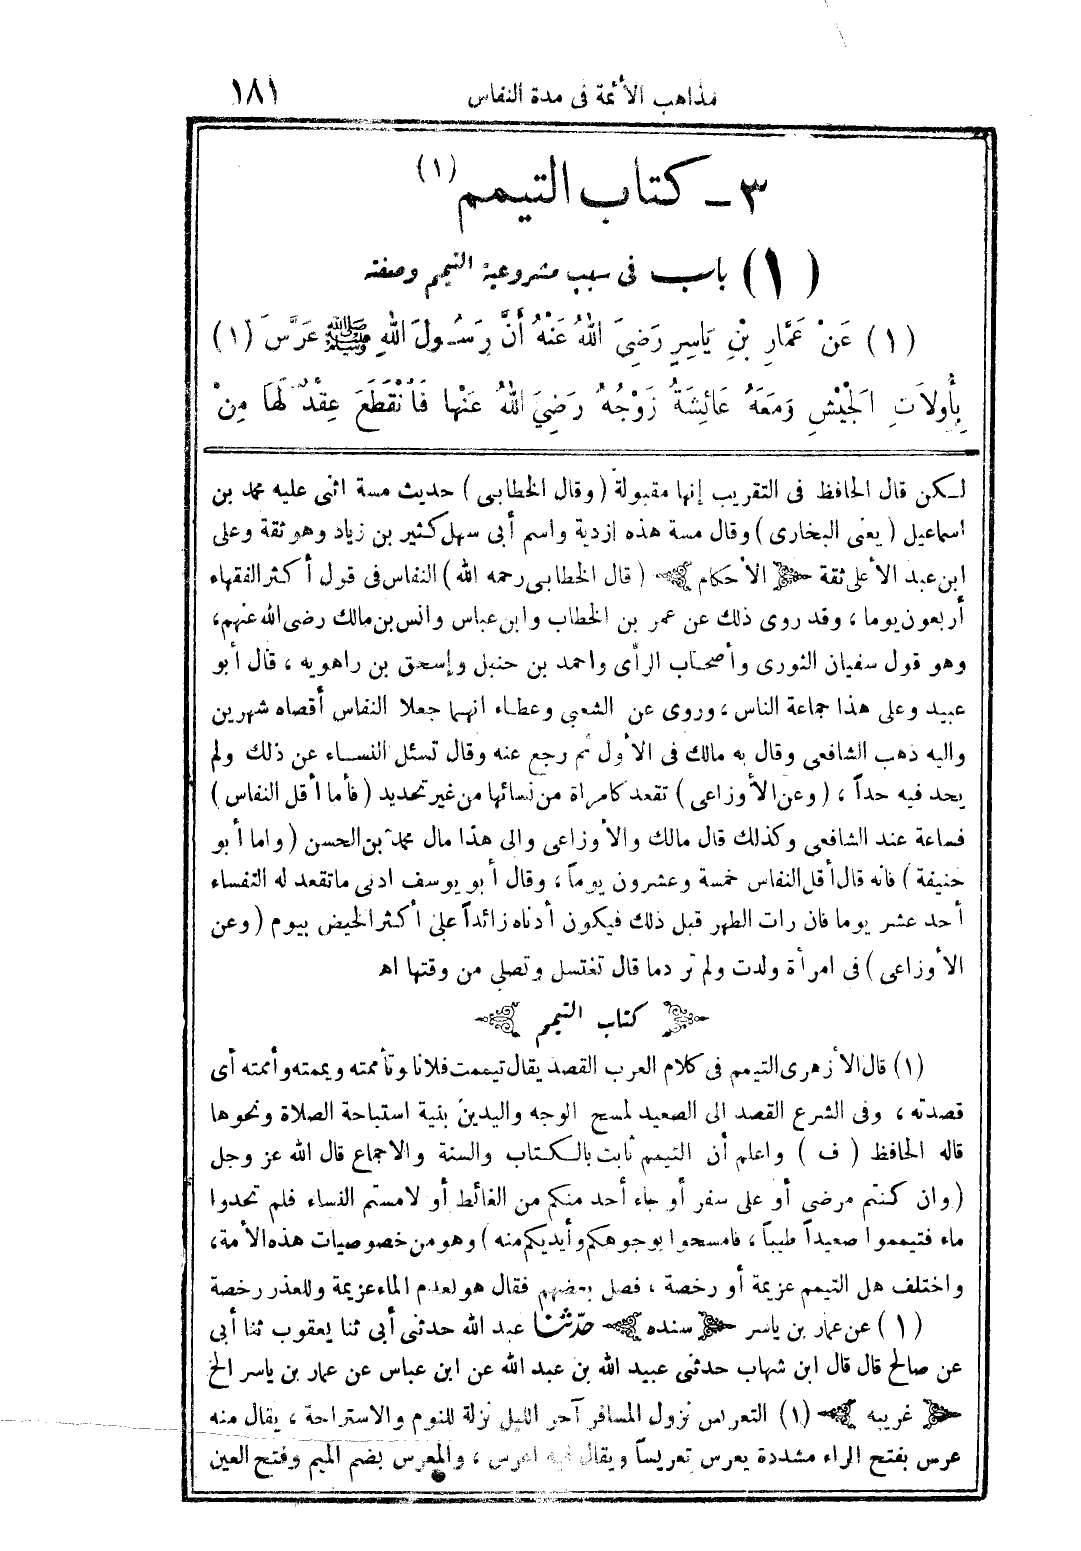 مذاهب الأئمة فى مدة النفاس ١٨١
٣ - كتاب التيمم (١)
(١) باب فى سبب مشروعية التيمم وصفته
(١) عَنْ عَمَّارِ بْنِ يَاسِرٍ رَضِىَ اللهُ عَنْهُ أَنَّ رَسُولَ اللهِ ﷺ عَرَّسَ (١)
بِأُولَاتِ الْجَيْشِ وَمَعَهُ عَائِشَةُ زَوْجُهُ رَضِيَ اللهُ عَنْهَا فَانْقَطَعَ عِقْدٌ لَهَا مِنْ
لكن قال الحافظ فى التقريب إنها مقبولة (وقال الخطابى) حديث مسة اثنى عليه محمد بن
اسماعيل (يعنى البخارى) وقال مسة هذه ازدية واسم أبى سهل كثير بن زياد وهو ثقة وعلى
ابن عبد الأعلى ثقة ﴿الأحكام﴾ (قال الخطابى رحمه الله) النفاس فى قول أكثر الفقهاء
أربعون يوما، وقد روى ذلك عن عمر بن الخطاب وابن عباس وانس بن مالك رضى الله عنهم،
وهو قول سفيان الثورى وأصحاب الرأى واحمد بن حنبل وإسحق بن راهويه، قال أبو
عبيد وعلى هذا جماعة الناس، وروى عن الشعبى وعطاء انهما جعلا النفاس أقصاه شهرين
واليه ذهب الشافعى وقال به مالك فى الأول ثم رجع عنه وقال تسئل النساء عن ذلك ولم
يحد فيه حداً، (وعن الأوزاعى) تقعد كامراة من نسائها من غير تحديد (فأما أقل النفاس)
فساعة عند الشافعى وكذلك قال مالك والأوزاعى والى هذا مال محمد بن الحسن (واما أبو
حنيفة) فانه قال أقل النفاس خمسة وعشرون يوماً، وقال أبو يوسف ادنى ماتقعد له النفساء
أحد عشر يوما فان رات الطهر قبل ذلك فيكون أدناه زائداً على أكثر الحيض بيوم (وعن
الأوزاعى) فى امرأة ولدت ولم تر دما قال تغتسل وتصلى من وقتها اهـ
﴿كتاب التيمم﴾
(١) قال الأزهرى التيمم فى كلام العرب القصد يقال تيممت فلانا وتأممته ويممته وأممته أى
قصدته، وفى الشرع القصد الى الصعيد لمسح الوجه واليدين بنية استباحة الصلاة ونحوها
قاله الحافظ (ف) واعلم أن التيمم ثابت بالكتاب والسنة والاجماع قال الله عز وجل
(وان كنتم مرضى أو على سفر أو جاء أحد منكم من الغائط أو لامستم النساء فلم تجدوا
ماء فتيمموا صعيداً طيباً، فامسحوا بوجوهكم وأيديكم منه) وهو من خصوصيات هذه الأمة،
واختلف هل التيمم عزيمة أو رخصة، فصل بعضهم فقال هو لعدم الماء عزيمة وللعذر رخصة
(١) عن عمار بن ياسر ﴿سنده﴾ حدّثنا عبد الله حدثنى أبى ثنا يعقوب ثنا أبى
عن صالح قال قال ابن شهاب حدثنى عبيد الله بن عبد الله عن ابن عباس عن عمار بن ياسر الخ
﴿غريبه﴾ (١) التعريس نزول المسافر آخر الليل نزلة للنوم والاستراحة، يقال منه
عرس بفتح الراء مشددة يعرس تعريساً ويقال فيه اعرس، والمعرس بضم الميم وفتح العين